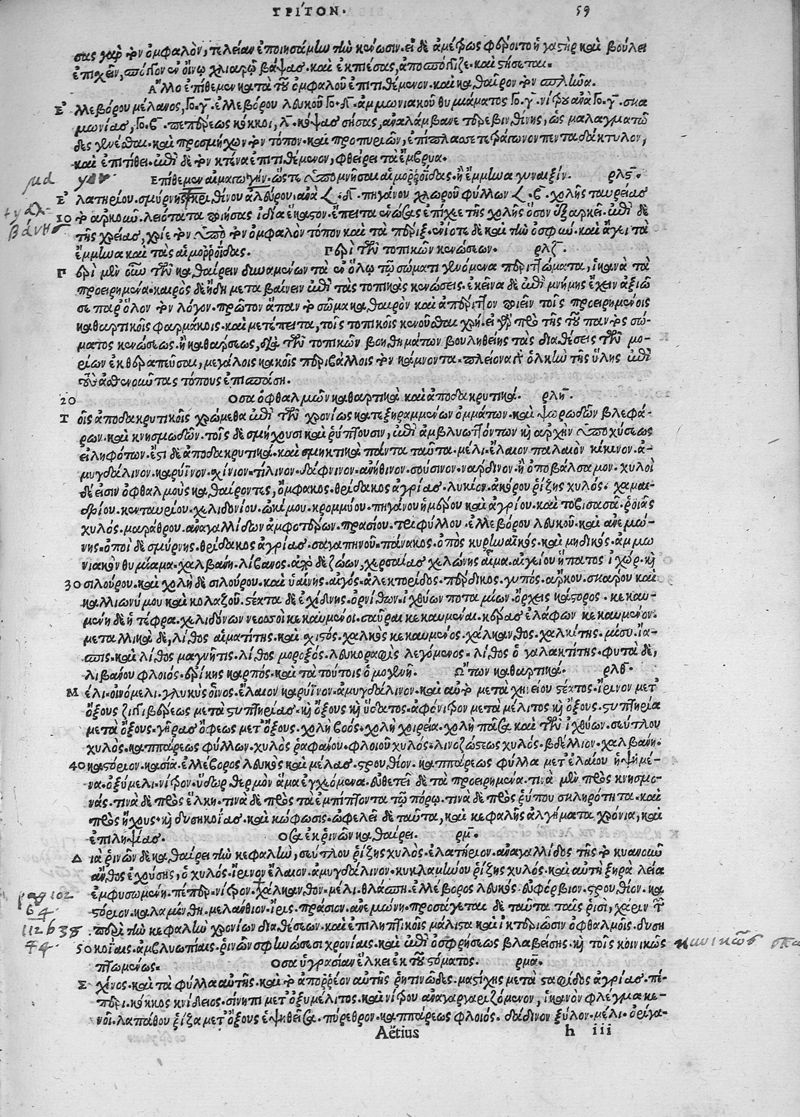 ΤΡΙΤΟΝ. 59
σας γὰρ τὸν ὀμφαλὸν, τελείαν ἐποιησάμην τὴν κένωσιν. εἰ δὲ ἀμέτρως φέροιτο ἡ γαστὴρ καὶ βούλει
ἐπιχεῖν, σπόγγον ἐν οἴνῳ χλιαρῷ βάψας καὶ ἐκπιέσας, ἀποσπόγγιζε καὶ στήσεται.
Αλλο ἐπίθεμα κατὰ τοῦ ὀμφαλοῦ ἐπιτιθέμενον. καὶ καθαῖρον τὸν
Ἐλλεβόρου μέλανος, Γο. γ. ἐλλεβόρου λευκοῦ Γο. δ. ἀμμωνιακοῦ θυμιάματος Γο. γ. νίτρου ἀνὰ Γο. γ. σκα
μωνίας, Γο. ϛ. πεπέρεως κόκκοι, λ. κόψας σήσας, ἀναλάμβανε τερεβινθίνης, ὡς μαλαγματῶ
δες γενέσθαι. καὶ προσμήχων τὸν τόπον καὶ προπυριῶν, ἐπίπλασσε τετράγωνον πενταδάκτυλον,
καὶ ἐπιτίθει. ἐπὶ δὲ τὸν κτένα ἐπιτιθέμενον, φθείρει τὰ ἔμβρυα.
Επίθεμα αἱματαγωγὸν, ὥστε ὑπομνῆσαι αἱμορροΐδας. ἢ ἔμμηνα γυναιξίν. ρλϛ.
Ἐλατηρίου, σμύρνης, ἀλεύρου, ἀνὰ δ. πηγάνου χλωροῦ φύλλων ϛ. χολῆς ταυρείας
τὸ ἀρκοῦν. λειότατα ποιήσας ἰδίᾳ ἕκαστον. ἔπειτα ἑνώσας ἐπίχεε τῆς χολῆς ὅσον ἐξαρκεῖ. ἐπὶ δὲ
τῆς χρείας, χρῖε τὸν ὑπὸ τὸν ὀμφαλὸν τόπον καὶ τὰ πέριξ. ἐνίοτε δὲ καὶ τὴν ὀσφῦν. καὶ ἄγει τὰ
ἔμμηνα καὶ τὰς αἱμορροΐδας. Περὶ τῶν τοπικῶν κενώσεων. ρλζ.
Περὶ μὲν οὖν τῶν καθαίρειν δυναμένων τὰ ἐν ὅλῳ τῷ σώματι γινόμενα περιττώματα, ἱκανὰ τὰ
προειρημένα. καιρὸς δὲ ἤδη μεταβαίνειν ἐπὶ τὰς τοπικὰς κενώσεις. ἐκεῖνα δὲ ἐπὶ μνήμης ἔχειν ἀξιῶ
σε παρ' ὅλον τὸν λόγον. πρῶτον ἅπαν τὸ σῶμα καθαρὸν καὶ ἀπέριττον ποιεῖν τοῖς προειρημένοις
καθαρτικοῖς φαρμάκοις. καὶ μετέπειτα, τοῖς τοπικοῖς κενοῦσθαι χρή. εἰ γὰρ πρὸ τῆς τοῦ παντὸς σώ
ματος κενώσεως ἢ καθάρσεως, διὰ τῶν τοπικῶν βοηθημάτων βουληθείης τὰς διαθέσεις τῶν μο
ρίων ἐκθεραπεῦσαι, μεγάλοις κακοῖς περιβάλλοις τὸν κάμνοντα. πλείονα γὰρ ὁλκὴν τῆς ὕλης ἐπὶ
τοὺς ἀσθενοῦντας τόπους ἐπισπάσῃ.
20 Οσα ὀφθαλμῶν καθαρτικὰ καὶ ἀποδακρυτικά. ρλη.
Τοῖς ἀποδακρυτικοῖς χρώμεθα ἐπὶ τῶν χρονίως κατεξηραμμένων ὀμμάτων. καὶ ψωρωδῶν βλεφά-
ρων. καὶ κνησμωδῶν. τοῖς δὲ σμήχουσι καὶ ῥύπτουσιν, ἐπὶ ἀμβλυωττόντων ἢ ἀρχὴν ὑποχύσεως
εἰληφότων. ἔστι δὲ ἀποδακρυτικὰ καὶ σμηκτικὰ πάντα ταῦτα. μέλι. ἔλαιον παλαιὸν. κίκινον. ἀ-
μυγδάλινον. καρύϊνον. σχίνινον. τήλινον. δάφνινον. ἀνήθινον. σούσινον. νάρδινον. ἢ ὀποβάλσαμον. χυλοὶ
δέ εἰσιν ὀφθαλμοὺς καθαίροντες, ὄμφακος. θρίδακος ἀγρίας. λύκιον. ῥίζης χυλός. χαμαι-
δρύου. κενταυρίου. χελιδονίου. ὠκίμου. κρομμύου. πηγάνου ἡμέρου καὶ ἀγρίου. ῥοιᾶς
χυλός. μαράθρου. ἀναγαλλίδων ἀμφοτέρων. πρασίου. τριφύλλου. ἐλλεβόρου λευκοῦ. καὶ ἀνεμώ-
νης. ὀποὶ δὲ σμύρνης. θρίδακος ἀγρίας. σαγαπηνοῦ. πάνακος. ὀπὸς κυρηναϊκὸς. καὶ μηδικός. ἀμμω
νιακὸν θυμίαμα. χαλβάνη. λίβανος. ἀπὸ δὲ ζώων, χερσαίας χελώνης αἷμα. αἰγείου ἥπατος ἰχώρ. καὶ
30 σιλούρου. καὶ χολὴ δὲ σιλούρου. καὶ ὑαίνης. αἰγὸς. ἀλεκτορίδος. πέρδικος. γυπός. ἄρκου. σκάρου καὶ
καλλιωνύμου καὶ κολαζοῦ. ἐχίδνης. ὀρνίθων. ἰχθύων ποταμίων. ὄρχεις κάστορος. κεκαυ-
μένη δὲ ἡ τέφρα. χελιδόνων νεοσσοὶ κεκαυμένοι. σαῦραι κεκαυμέναι. κέρας ἐλάφων κεκαυμένον.
μεταλλικὰ δὲ, λίθος αἱματίτης. καὶ σχιστός. χαλκὸς κεκαυμένος. χάλκανθος. χαλκίτης. μίσυ. ἴα-
σπις. καὶ λίθος μαγνῆτις. λίθος μόροξος. λευκογραφὶς λεγόμενος. λίθος ὁ γαλακτίτης. φυτὰ δὲ,
λιβάνου φλοιὸς. ἐρείκης καρπός. καὶ τὰ τούτοις ὁμογενῆ. Ωτων καθαρτικά. ρλθ.
Μέλι. οἰνόμελι. γλυκὺς οἶνος. ἔλαιον καρύϊνον. ἀμυγδάλινον. ἴρινον μετ'
ὄξους. ζιγγιβέρεως μετὰ στυπτηρίας. ἢ ὄξους ἢ ὕδατος. ἀφρόνιτρον μετὰ μέλιτος ἢ ὄξους. στυπτηρία
μετὰ ὄξους. γῆρας ὄφεως μετ' ὄξους. χολὴ βοός. χολὴ χοιρεία. χολὴ πᾶσα καὶ τῶν ἰχθύων. σεύτλου
χυλός. καππάρεως φύλλων. χυλὸς ῥαφάνου. φλοιοῦ χυλός. λινοζώστεως χυλός. βδέλλιον. χαλβάνη.
40 καστόριον. κασία. ἐλλέβορος λευκὸς καὶ μέλας. στρούθιον. καππάρεως φύλλα μετ' ἐλαίου ἑψημέ-
να. ὀξύμελι. νίτρον. ὕδωρ θερμὸν ἅμα ἐγχεόμενα. εὐθετεῖ δὲ τὰ προειρημένα. τινὰ μὲν πρὸς κνησμο-
νάς. τινὰ δὲ πρὸς ἕλκη. τινὰ δὲ πρὸς τὰ ἐμπίπτοντα τῷ πόρῳ. τινὰ δὲ πρὸς ῥύπου σκληρότητα. καὶ
πρὸς ἤχους. ἢ δυσηκοΐας. καὶ κώφωσις. ὠφελεῖ δὲ ταῦτα, καὶ κεφαλῆς ἀλγήματα χρόνια, καὶ
ἐπιληψίας. Οσα ἐκ ῥινῶν καθαίρει. ρμ.
Διὰ ῥινῶν δὲ καθαίρει τὴν κεφαλὴν, σεύτλου ῥίζης χυλός. ἐλατήριον. ἀναγαλλίδος τῆς τὸ κυανοῦν
ἄνθος ἐχούσης, ὁ χυλός. ἴρινον ἔλαιον. ἀμυγδάλινον. κυκλαμίνου ῥίζης χυλός. καὶ αὐτὴ ξηρὰ λεία
ἐμφυσωμένη. πέπερι. νίτρον. χάλκανθον. μέλι. ἐλλέβορος λευκός. εὐφόρβιον. στρούθιον. κα
στόριον. καλαμίνθη. μελάνθιον. ἶρις. πράσιον. ἀνεμώνη. προσάγεται δὲ ταῦτα ταῖς ῥισὶ, χάριν τῶν
περὶ τὴν κεφαλὴν χρονίων διαθέσεων. καὶ ἐπιληπτικοῖς μάλιστα. καὶ ἰκτεριῶσιν ὀφθαλμοῖς. δυση
50 κοΐαις. ἀμβλυωπίαις. ῥινῶν χρονίαις. καὶ ἐπὶ ὀσφρήσεως βλαβείσης. ἢ τοῖς κυνικῶς
σπωμένοις. Οσα ὑγρασίαν ἕλκει ἐκ τοῦ στόματος. ρμα.
Σχῖνος. καὶ τὰ φύλλα αὐτῆς. καὶ τὸ ἀπορρέον αὐτῆς ῥητινῶδες. μαστίχης μετὰ σταφίδος ἀγρίας. πέ-
περι. κόκκος κνίδειος. σίνηπι μετ' ὀξυμέλιτος. καὶ νίτρου ἀναγαργαριζόμενον, ἱκανὸν φλέγμα κε-
νοῖ. λαπάθου ῥίζα μετ' ὄξους ἑψηθεῖσα. πύρεθρον. καππάρεως φλοιός. δάδινον ξύλον. μέλι. ὀρίγα-
Aëtius h iii